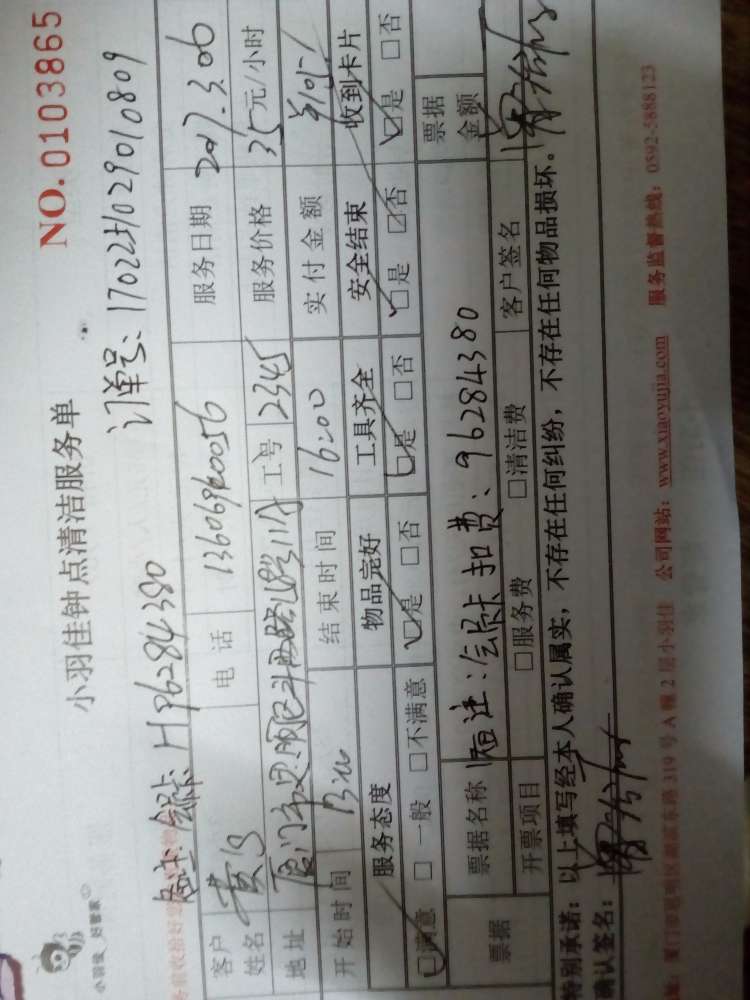 小羽佳 好管家
小羽佳钟点清洁服务单
NO.0103865
订单号:
会员卡 H96284380
客户姓名 电话 服务日期 2017.3.06
地址 工号 2345 服务价格 35元/小时
开始时间 结束时间 16:00 实付金额
服务态度 物品完好 工具齐全 安全结束 收到卡片
☑满意 □一般 □不满意 ☑是 □否 ☑是 □否 □是 ☑否 ☑是 □否
票据 票据名称 备注:会员卡扣费:96284380 票据金额
开票项目 □服务费 □清洁费 客户签名
特别承诺:以上填写经本人确认属实,不存在任何纠纷,不存在任何物品损坏。
确认签名:
址:厦门市思明区湖滨东路319号A幢2层小羽佳 公司网站:www.xiaoyujia.com 服务监督热线:0592-5888123